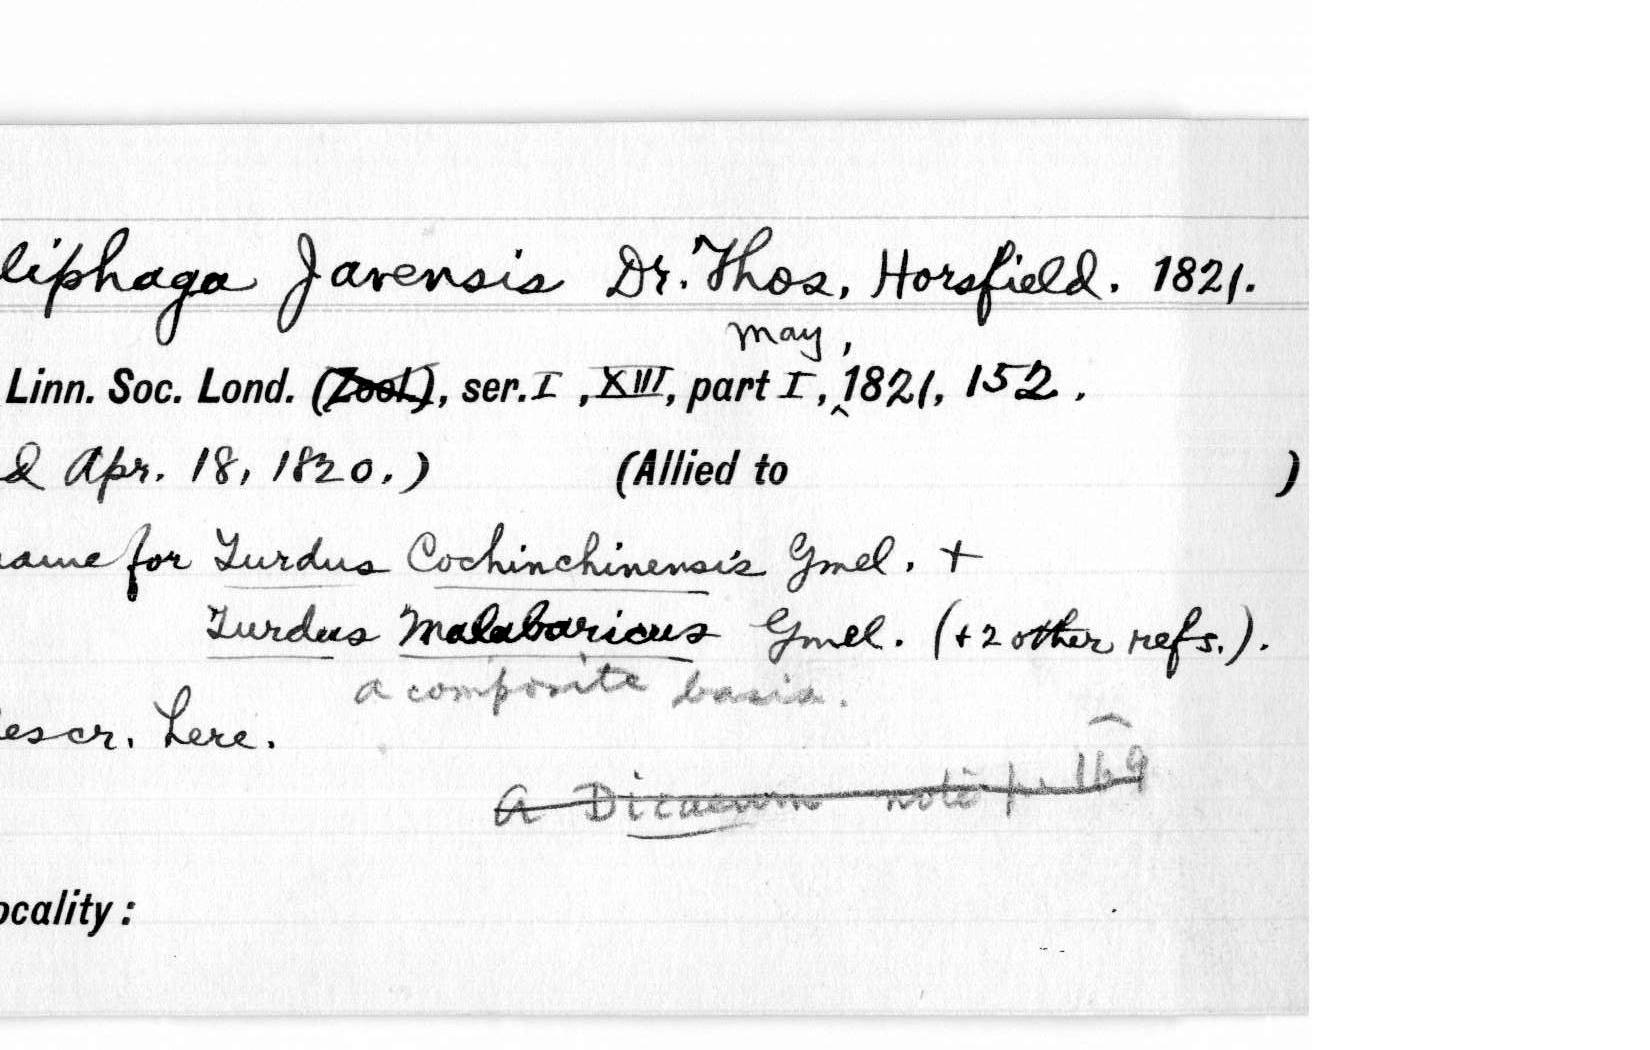 liphaga Javensis Dr. Thos, Horsfield. 1821.
May,
Linn. Soc. Lond. (Zool.), ser. I, XIII, part I, ^1821, 152.
d Apr. 18, 1820.) (Allied to )
name for Turdus Cochinchinensis Gmel. +
Turdus Malabaricus Gmel. (+2 other refs.).
a composite basis.
escr. here.
A Dicaeum note p. 169
ocality: